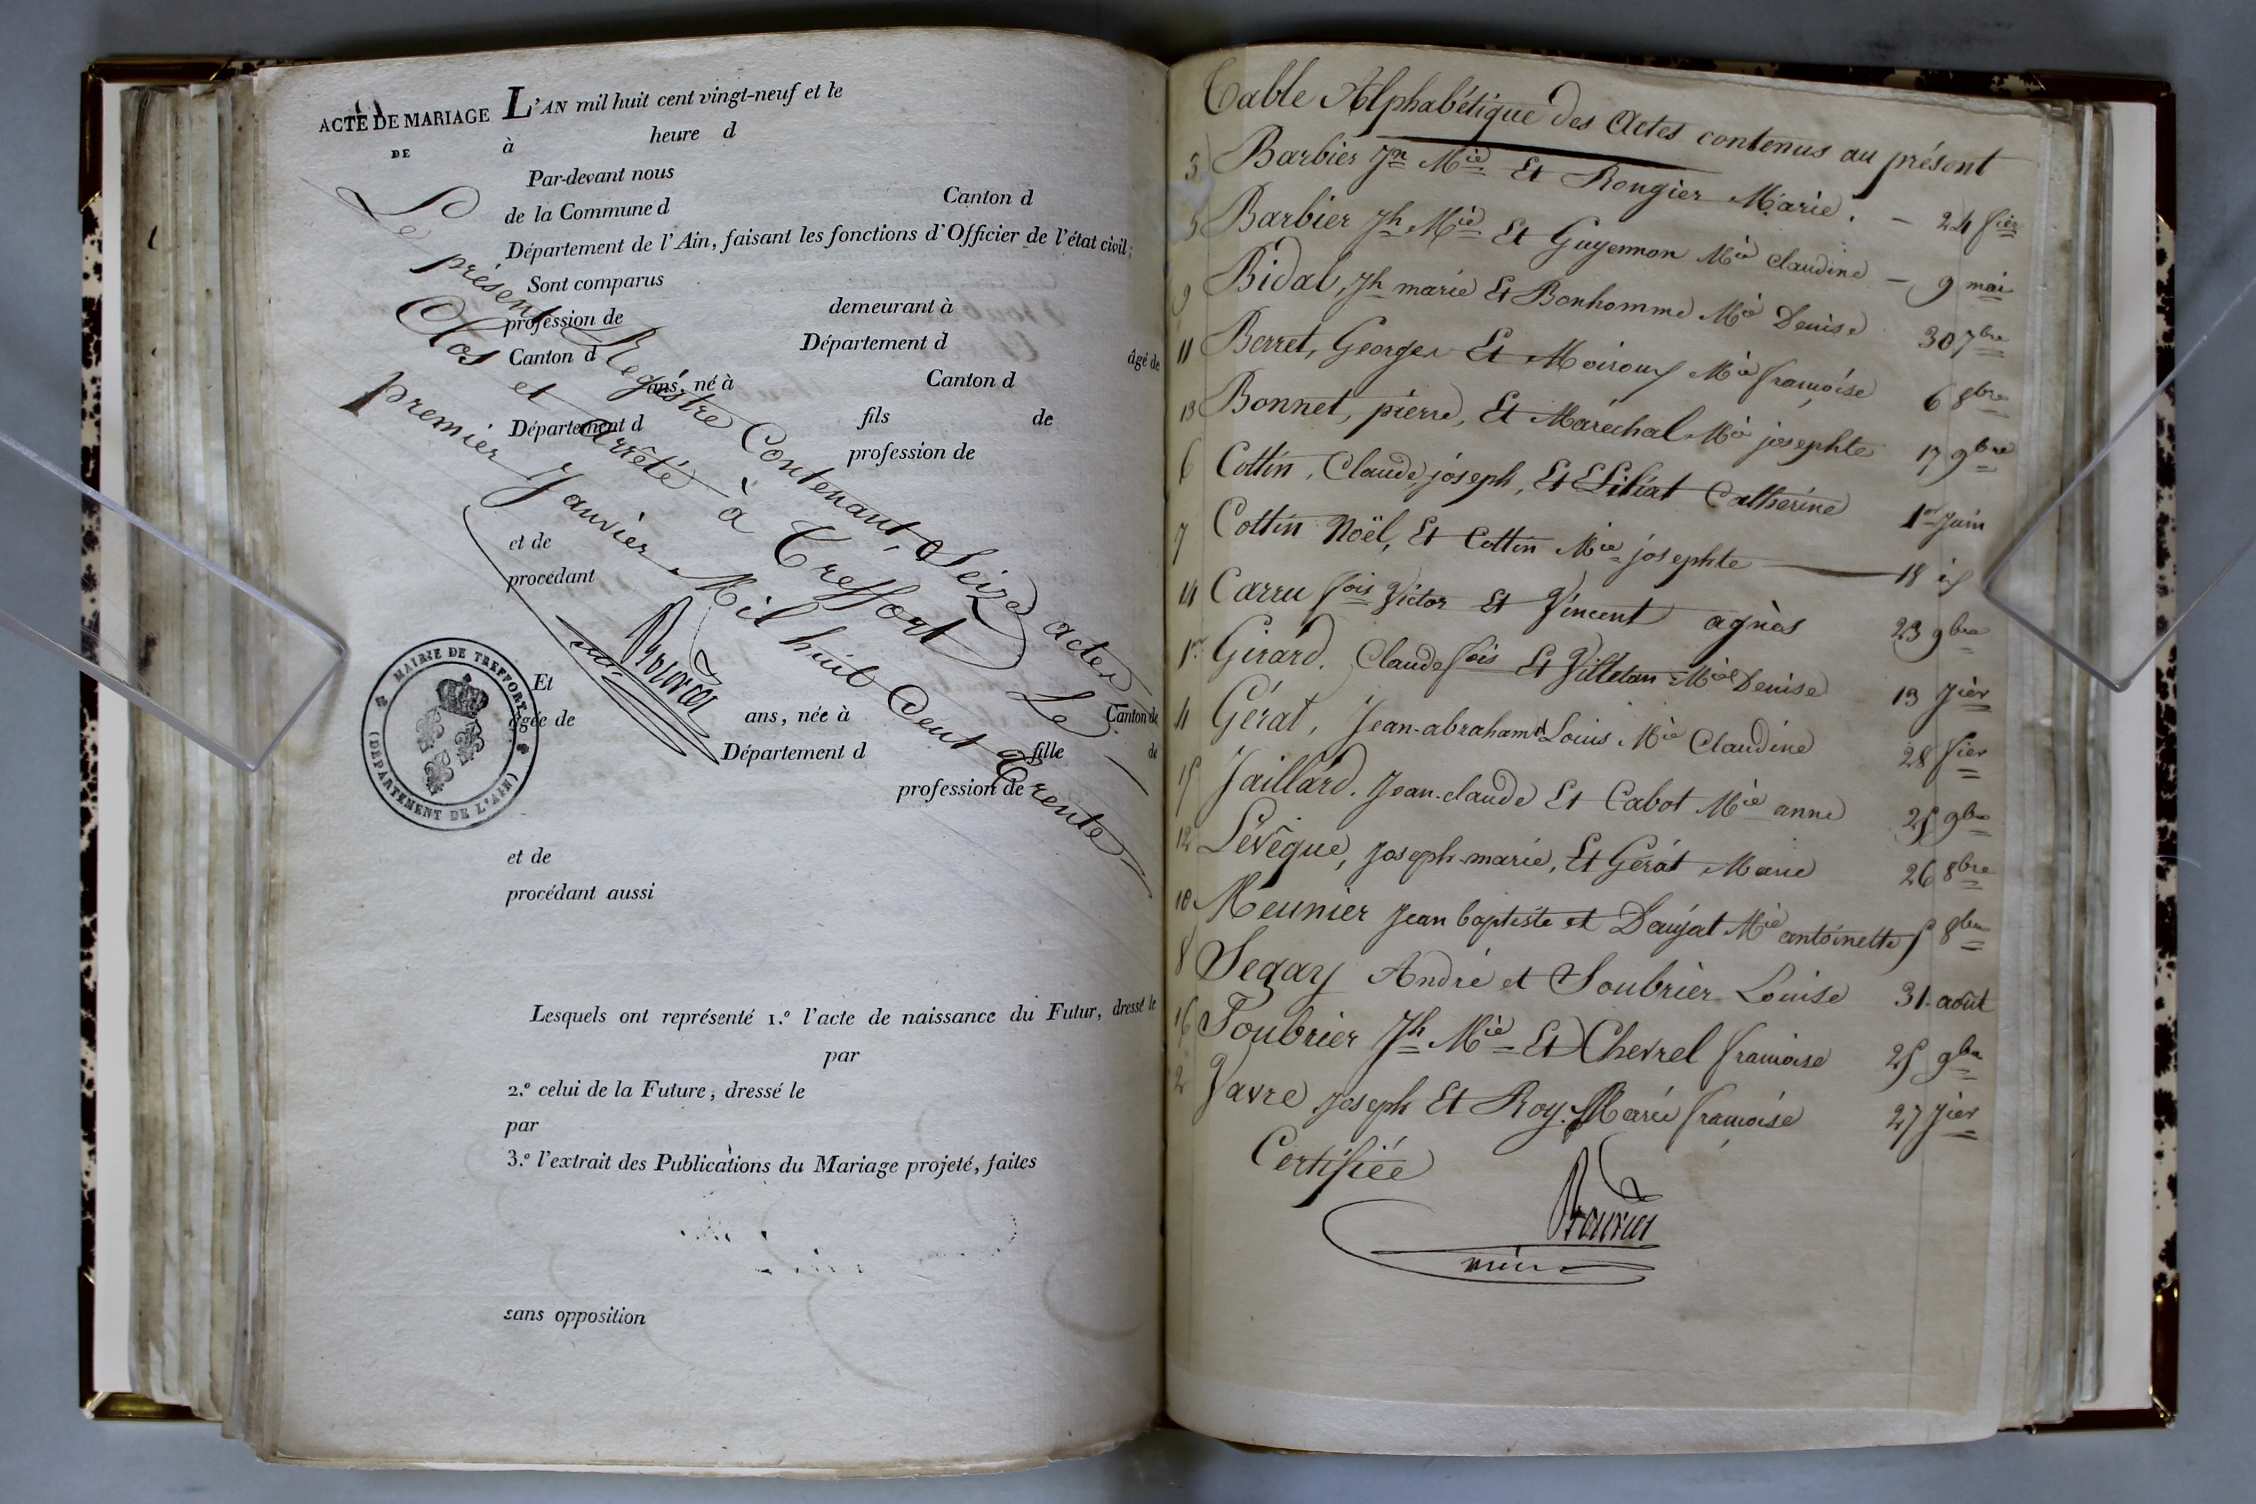 ACTE DE MARIAGE
DE
L'AN mil huit cent vingt-neuf et le
à heure d
Par-devant nous
de la Commune d Canton d
Département de l'Ain, faisant les fonctions d'Officier de l'état civil;
Sont comparus
profession de demeurant à
Canton d Département d âgé de
ans, né à Canton d
Département d fils de
profession de
et de
procédant
Et
âgée de ans, née à Canton de
Département d fille de
profession de
et de
procédant aussi
Lesquels ont représenté 1.º l'acte de naissance du Futur, dressé le
par
2.º celui de la Future, dressé le
par
3.º l'extrait des Publications du Mariage projeté, faites
sans opposition
Le présent Registre Contenant Seize actes
Clos et arrêté à Treffort Le
premier Janvier Mil huit Cent Trente
MAIRIE DE TREFFORT
(DEPARTEMENT DE L'AIN)
Table Alphabétique des Actes contenus au présent
3 Barbier Jn Mie Et Rougier Marie. - 24 fier
5 Barbier Jh Mie Et Guyennon Mie Claudine - 9 mai
9 Bidal, Jh marie Et Bonhomme Mie Denise 30 7bre
11 Berret, Georges Et Moiroux Mie françoise 6 8bre
13 Bonnet, pierre, Et Maréchal Mie josephte 17 9bre
6 Cottin, Claude joseph, Et Liliat Catherine 1er Juin
7 Cottin Noël, Et Cottin Mie josephte 18 id
14 Carru fois Victor Et Vincent agnès 23 9bre
1er Girard. Claude fois Et Villetan Mie Denise 13 Jier
4 Gérat, Jean-abraham Et Louis Mie Claudine 28 fier
15 Jaillard. Jean-claude Et Cabot Mie anne 25 9bre
12 Lévêque, Joseph-marie, Et Gérat Marie 26 8bre
10 Meunier Jean baptiste et Daujat Mie antoinette 5 8bre
8 Segay André et Soubrier Louise 31 août
16 Soubrier Jh Mie Et Chevrel françoise 25 9bre
2 Vavre Joseph Et Roy. Marie françoise 27 Jier
Certifiée